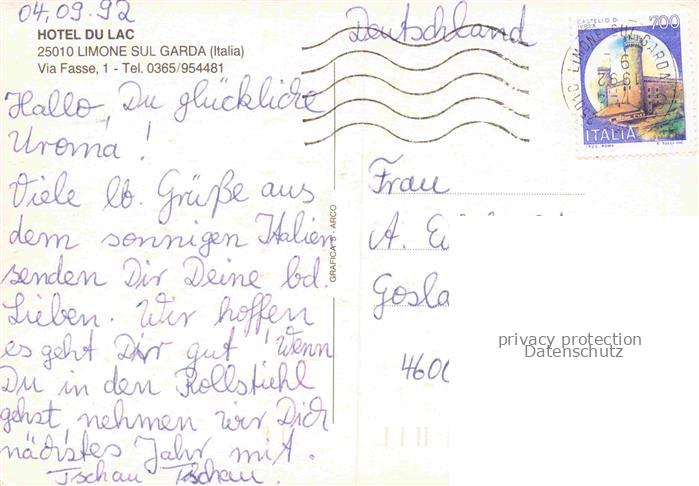 04.09.92
HOTEL DU LAC
25010 LIMONE SUL GARDA (Italia)
Via Fasse, 1 - Tel. 0365/954481
Hallo, Du glückliche
Uroma!
Viele lb. Grüße aus
dem sonnigen Italien
senden Dir Deine bd.
Lieben. Wir hoffen
es geht Dir gut! Wenn
Du in den Rollstuhl
gehst, nehmen wir Dich
nächstes Jahr mit.
Tschau Tschau.
GRAFICA 5 - ARCO
Deutschland
CASTELLO DI
IVREA
700
ITALIA
25010 LIMONE SUL GARDA
1992
Frau
A.
Gosla
4600
privacy protection
Datenschutz